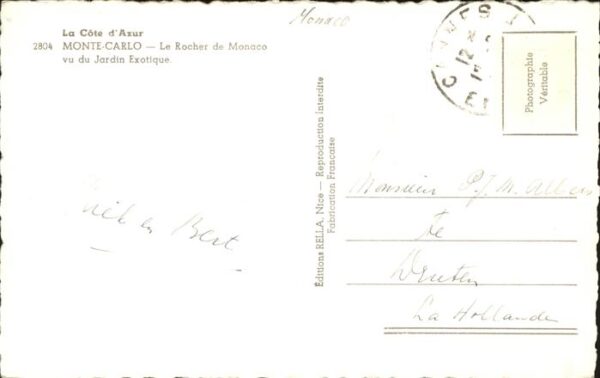 La Côte d'Azur
2804 MONTE-CARLO — Le Rocher de Monaco
vu du Jardin Exotique.
Monaco
CANNES
12
Photographie
Véritable
Éditions RELLA, Nice — Reproduction interdite
Fabrication Française
en Bert
Monsieur P.J.M. Albers
Te
Druten
La Hollande